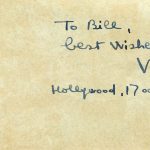 To Bill,
best Wishe
V
Hollywood, 17 oc